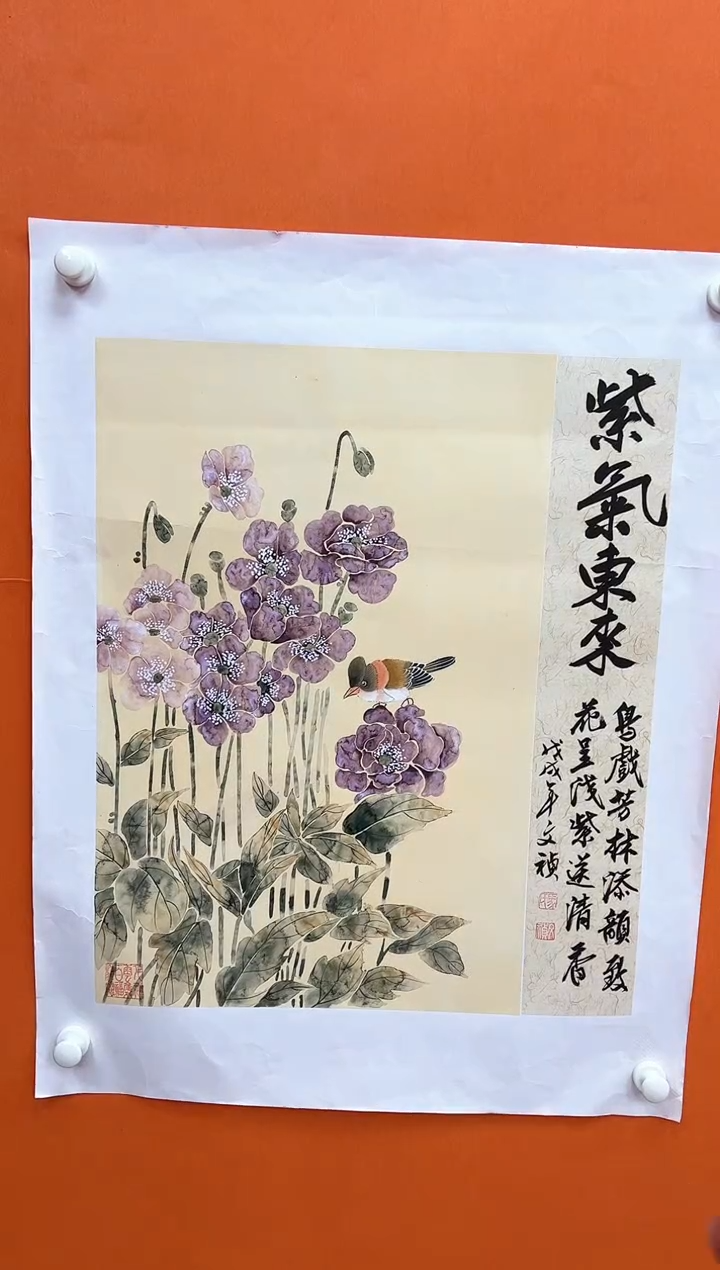 紫氣東來
鳥戲芳林添韻致
花呈浅紫送清香
戊戌年文禎